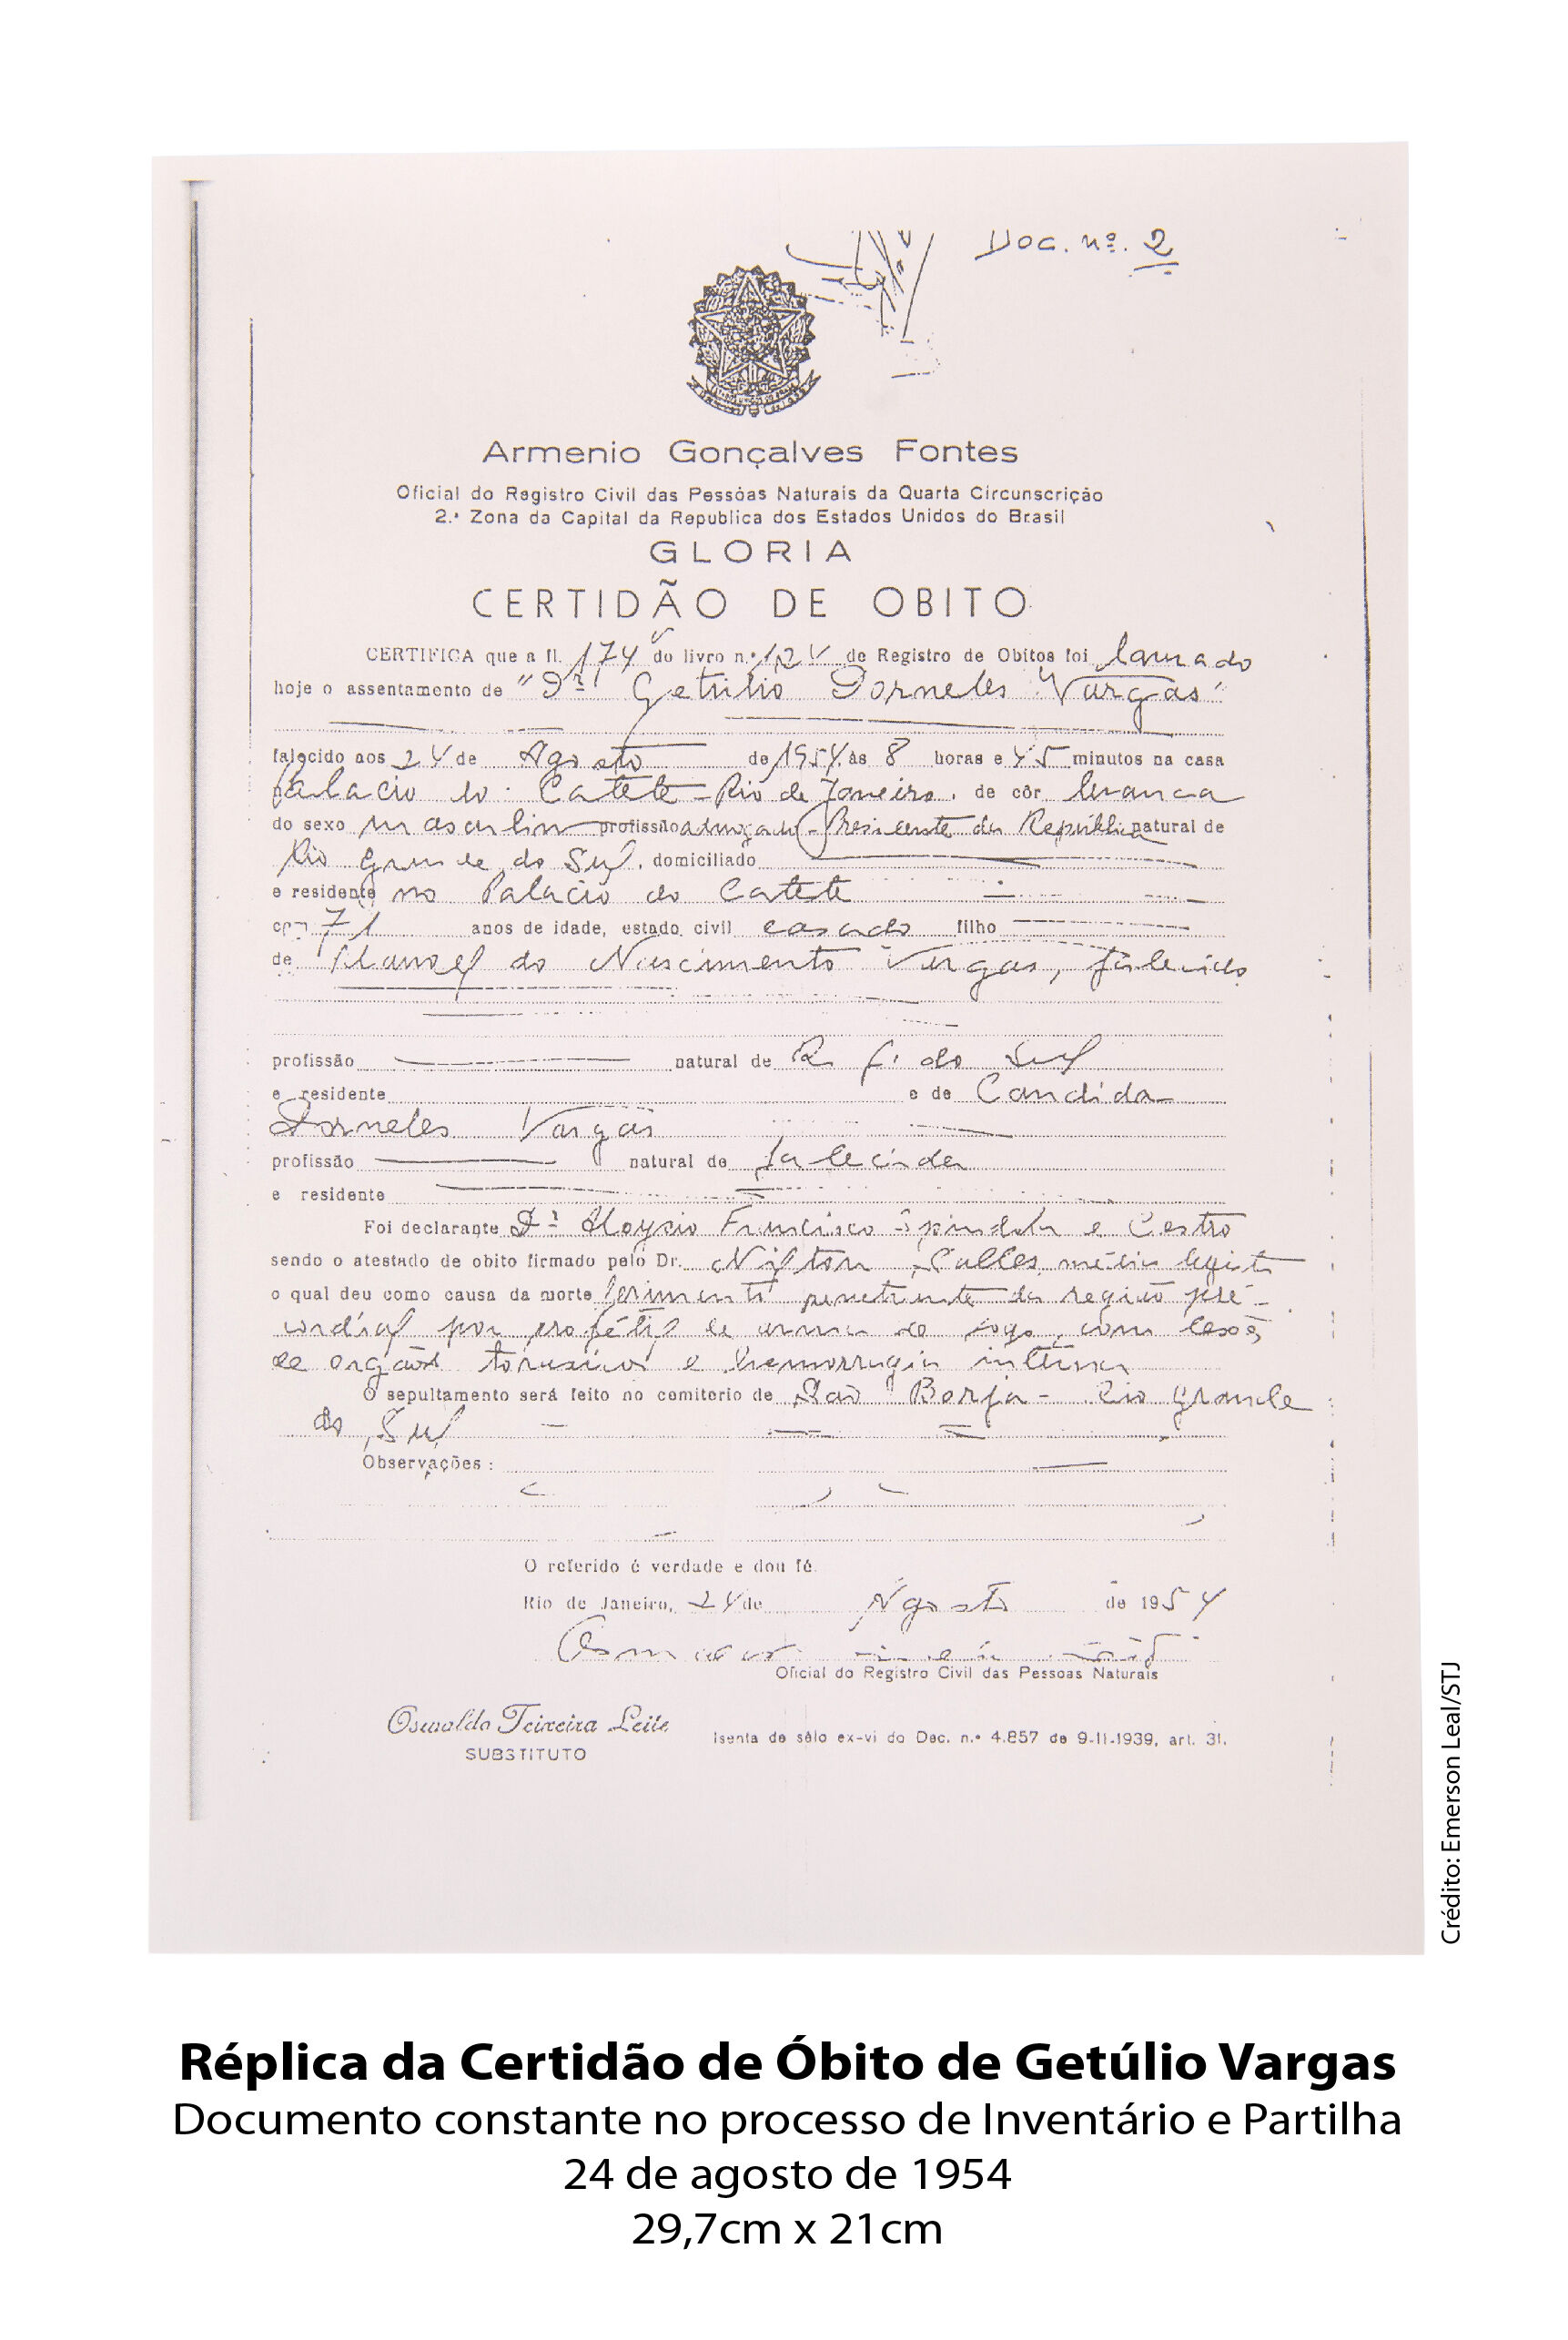 Doc. nº. 2
Armenio Gonçalves Fontes
Oficial do Registro Civil das Pessôas Naturais da Quarta Circunscrição
2.ª Zona da Capital da Republica dos Estados Unidos do Brasil
GLORIA
CERTIDÃO DE OBITO
CERTIFICA que a fl. 174 v do livro n.º 12 V de Registro de Obitos foi lavrado
hoje o assentamento de "Dr. Getulio Dorneles Vargas"
falecido aos 24 de Agosto de 1954, às 8 horas e 45 minutos na casa
Palacio do Catete - Rio de Janeiro, de côr branca
do sexo masculino profissão advogado - Presidente da República natural de
Rio Grande do Sul, domiciliado
e residente no Palacio do Catete
com 71 anos de idade, estado civil casado filho
de Manoel do Nascimento Vargas, falecido
profissão natural de R. G. do Sul
e residente e de Candida
Dorneles Vargas
profissão natural de falecida
e residente
Foi declarante Dr. Aloysio Francisco Spindola e Castro
sendo o atestado de obito firmado pelo Dr. Nilton Salles, médico legista
o qual deu como causa da morte ferimento penetrante da região pré-
cordial por projétil de arma de fogo, com lesões
de orgãos toraxicos e hemorragia interna
O sepultamento será feito no cemiterio de São Borja - Rio Grande
do Sul
Observações :
O referido é verdade e dou fé.
Rio de Janeiro, 24 de Agosto de 1954
Oficial do Registro Civil das Pessoas Naturais
Oswaldo Teixeira Leite
SUBSTITUTO
Isenta de sêlo ex-vi do Dec. n.º 4.857 de 9-11-1939, art. 31.
Crédito: Emerson Leal/STJ
Réplica da Certidão de Óbito de Getúlio Vargas
Documento constante no processo de Inventário e Partilha
24 de agosto de 1954
29,7cm x 21cm